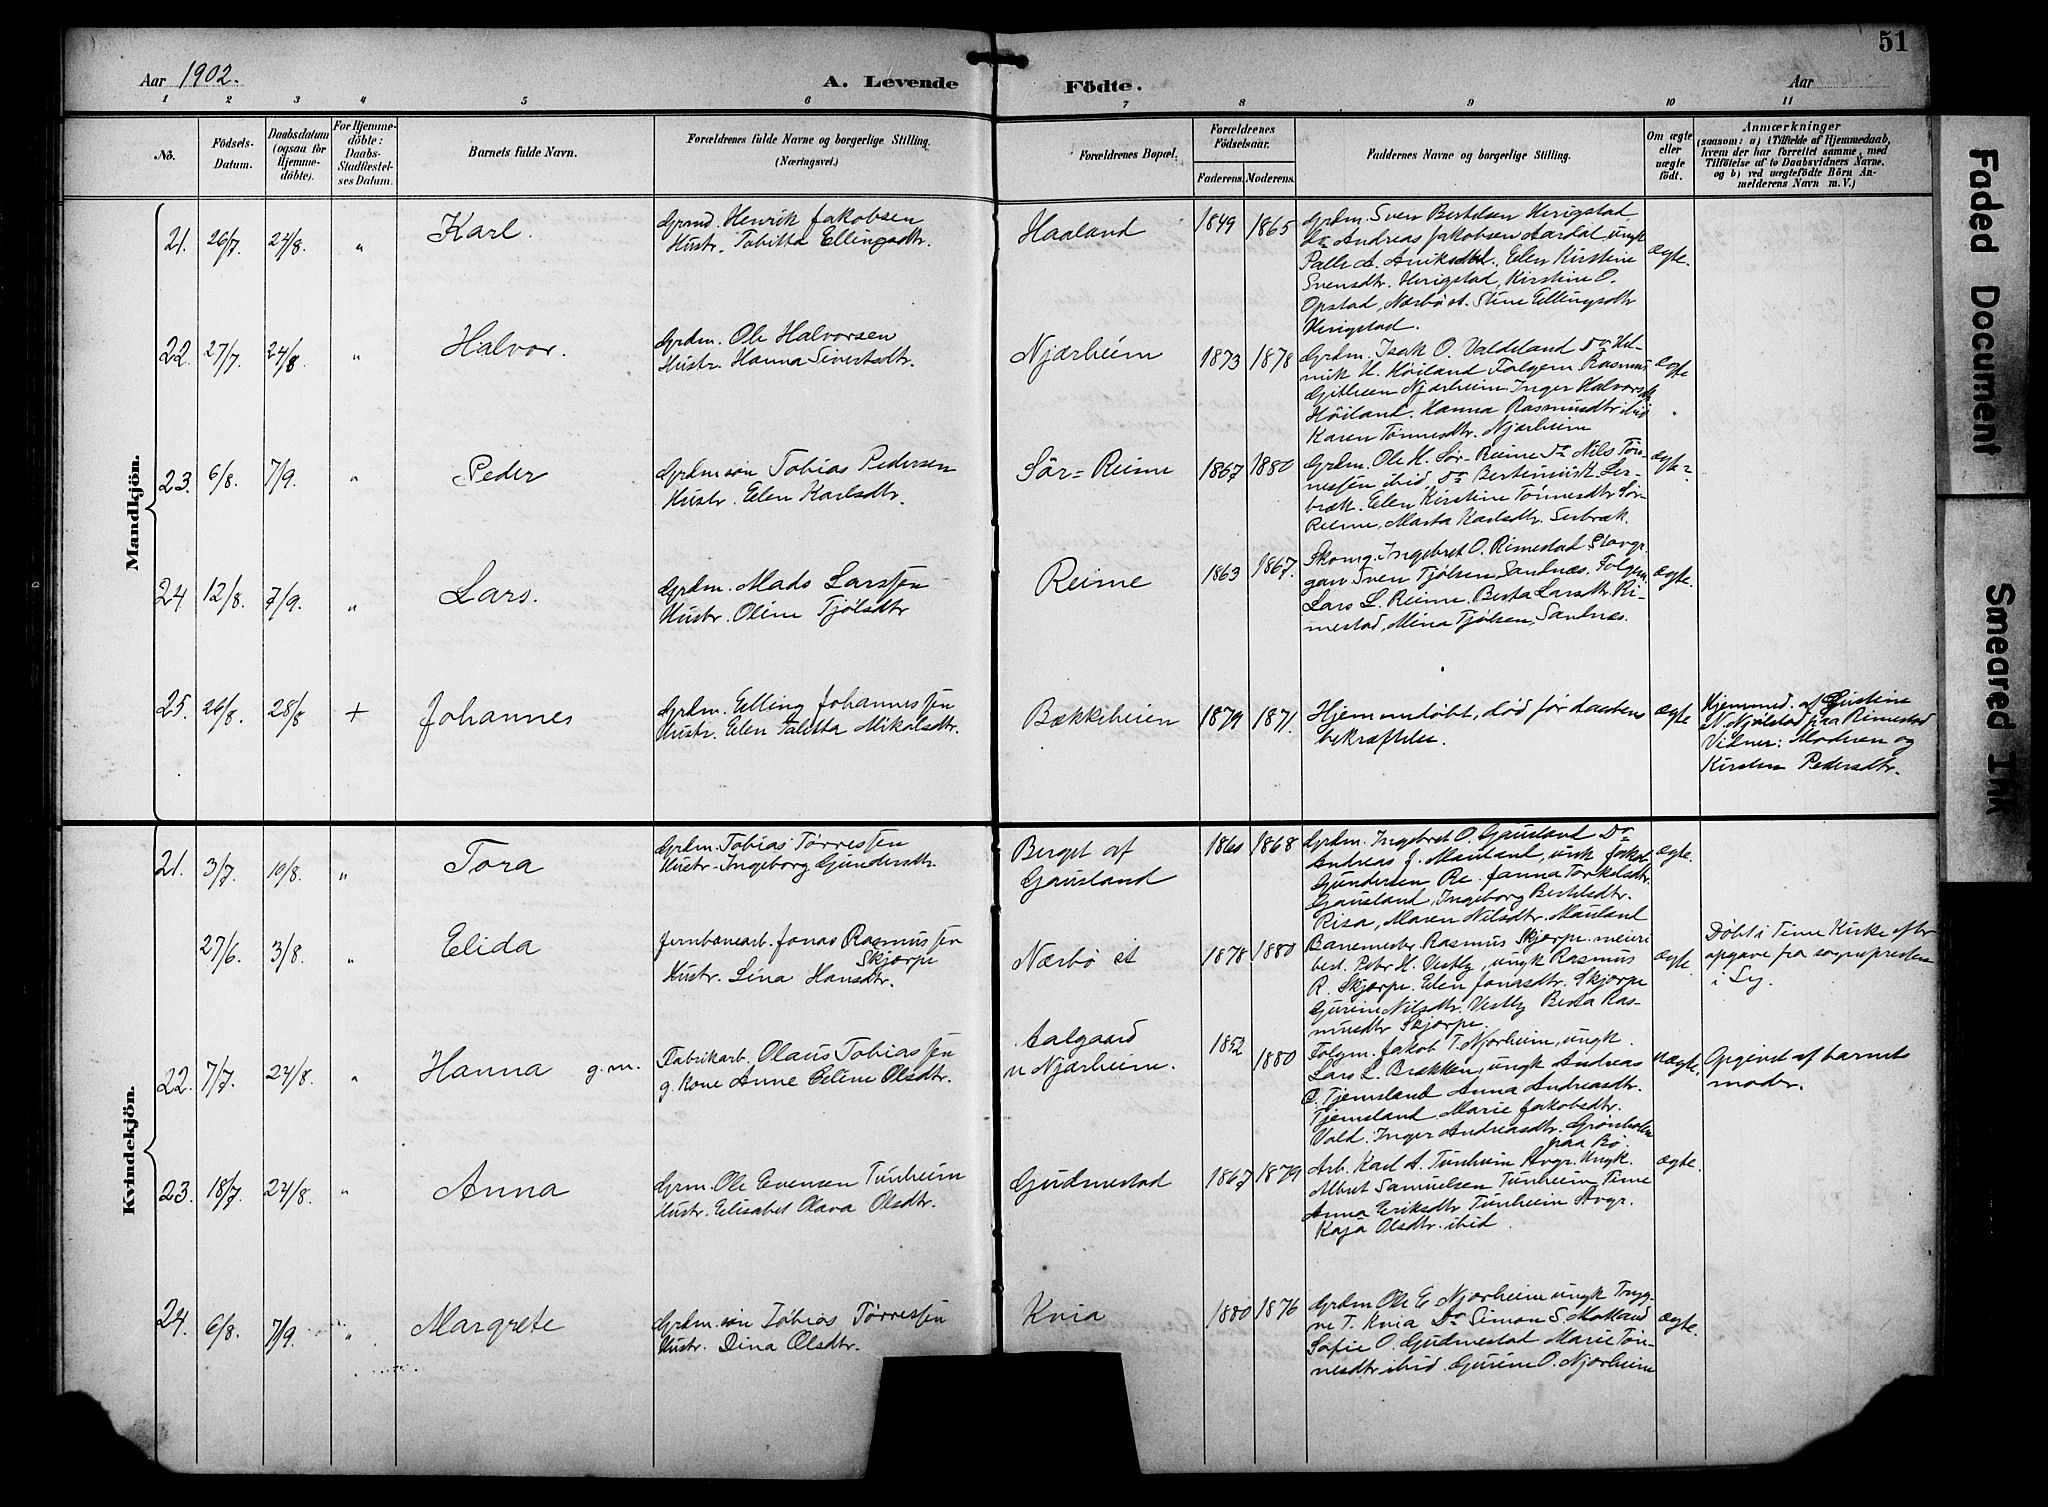 51
Aar 1902.
A. Levende Födte.
Aar
1 2 3 4 5 6 7 8 9 10 11
Nô.
Födsels-
Datum.
Daabsdatum
(ogsaa for
Hjemme-
döbte).
For Hjemme-
döbte:
Daabs-
Stadfæstel-
ses Datum.
Barnets fulde Navn.
Forældrenes fulde Navne og borgerlige Stilling.
(Næringsvei.)
Forældrenes Bopæl.
Forældrenes
Födselsaar.
Faderens. Moderens.
Faddernes Navne og borgerlige Stilling.
Om ægte
eller
uægte
födt.
Anmærkninger
(saasom: a) i Tilfælde af Hjemmedaab,
hvem der har forrettet samme, med
Tilföielse af to Daabsvidners Navne,
og b) ved uægtefödte Börn An-
melderens Navn m. V.)
Mandkjön.
21. 26/7. 24/8. " Karl.
Grmd. Henrik Jakobsen
Hustr. Tabitta Ellingsdtr.
Haaland
1849 1865
Grdm. Sven Bertelsen Herigstad
Do Andreas Jakobsen Aardal, ungk
Palle A. Eelen Kirstine
Svensdtr. Herigstad, Kirstine O.
Opstad, Nærbö st. Stine Ellingsdtr
Herigstad.
ægte.
22. 27/7. 24/8 " Halvor.
Grdm. Ole Halvorsen
Hustr. Hanna Sivertsdtr.
Njærheim
1873 1878
Grdm. Isak O. Valdeland Do Hen-
rik H. Höiland Folgem Rasmus
Njærheim. Inger Halvorsdtr
Höiland. Hanna Rasmusdtr ibid
Karen Tönnesdtr. Njærheim
ægte
23. 6/8. 7/9. " Peder
Grdmsön Tobias Pedersen
Hustr. Elen Karlsdtr.
Sör-Reime
1867 1880
Grdm. Ole K. Sör-Reime Do Nils Tön-
nessen ibid, Do K. Ser-
bræk. Elen Kirstine Tönnesdtr Sör-
Reime, Marta Karlsdtr. Serbræk.
ægte
24. 12/8. 7/9. " Lars.
Grdm. Mads Larssen
Hustr. Oline Tjölsdtr
Reime
1863 1867.
Skomg. Ingebret O. Rimestad
Sven Tjölsen, Sandnæs. Folgem.
Lars L. Reime. Berta Larsdtr. Ri-
mestad, Mina Tjölsen, Sandnæs.
ægte.
25. 26/8. 28/8 + Johannes
Grdm. Elling Johannessen
Hustr. Elen Taletta Mikalsdtr.
Bækkeheien
1879 1871.
Hjemmedøbt, død før daabens
bekræftelse.
ægte
Hjemmed. af Gustine
N. Njölstad paa Rimestad
Vidner: Moderen og
Kirsten Pedersdtr.
Kvindekjön.
21. 3/7. 10/8. " Tora
Grdm. Tobias Törressen
Hustr. Ingeborg Gundersdtr.
Berget af
Gausland
1868
Grdm. Ingebret O. Gausland Do
Andreas J. Mauland, ungk Jakob
Gundersen Re. Janna Torkelsdtr.
Gausland, Ingeborg Bertelsdtr.
Risa, Maren Nilsdtr. Mauland
ægte.
27/6. 3/8. " Elida
Jernbanearb. Jonas Rasmussen
Skjørpe
Hustr. Lina Hansdtr.
Nærbö st
1878 1880
Banemester Rasmus Skjørpe. meieri
best. Peter H. Vestly, ungk Rasmus
R. Skjørpe. Elen Jonasdtr. Skjørpe
Gurine Nilsdtr. Vestly Berta Ras-
musdtr Skjørpe.
ægte.
Döbt i Time Kirke efter
opgave fra sognepresten
i Ly.
22. 7/7. 24/8. " Hanna g.m.
Fabrikarb. Olaus Tobiassen
g. Kone Anne Eeline Olsdtr.
Aalgaard
n Njærheim.
1852 1880
Folgm. Jakob T. Njærheim, ungk.
Lars L. Brækken, ungk Andreas
O. Tjemsland Anna Andreasdtr.
Tjemsland Marie Jakobsdtr.
Vold. Inger Andreasdtr. Grönholen
paa Bö.
uægte.
Opgivet af barnets
moder.
23. 18/7. 24/8. " Anna
Grm. Ole Evensen Tunheim
Hustr. Elisabet Olava Olsdtr.
Gudmestad
1867 1879
Arb. Karl A. Tunheim Avgr. Ungk.
Albert Samuelsen Tunheim Time
Anna Eriksdtr Tunheim Avgr.
Kaja Olsdtr. ibid.
ægte.
24. 6/8. 7/9. " Margrete
Grdm.sön Tobias Törressen
Hustr. Dina Olsdtr.
Kvia
1880 1876
Grdm Ole E Njærheim ungk Tryg-
ve T. Kvia Do Simon S. Motland
Sofie O. Gudmestad Marie Tön-
nesdtr ibid. Gurine O. Njærheim
ægte.
Faded Document
Smeared Ink